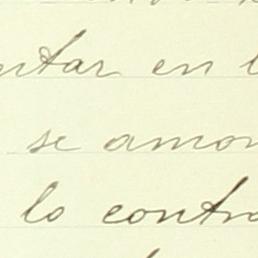 ntar en l
se amon
lo contra